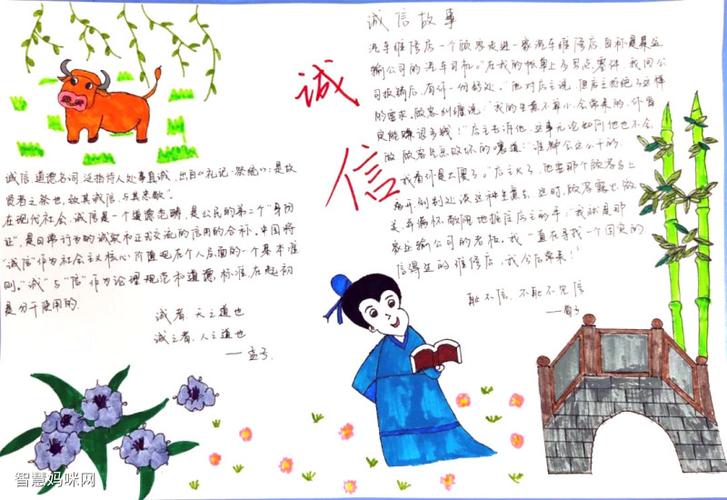 诚信故事
诚
信
诚信,道德名词,泛指待人处事真诚,出自《礼记·祭统》:是故
贤者之祭也,致其诚信,与其忠敬".
在现代社会,诚信是一个道德范畴,是公民的第二个"身份
证",是日常行为的诚实和正式交流的信用的合补,中国将
"诚信"作为社会主义核心价值观个人层面的一个基本准
则."诚"与"信"作为论理规范和道德标准在起初
是分开使用的.
诚者.天之道也
诚之者.人之道也
——孟子.
汽车维修店一个顾客走进一家汽车维修店,自称是某运
输公司的汽车司机."在我的帐单上多写点零件,我回公
司报销后,有你一份好处."他对店主说.但店主拒绝了这样
的要求.顾客纠缠说:"我的生意不算小,会常来的,你肯
定能赚很多钱!"店主告诉他,这事无论如何他也不会
做.顾客气急败坏的嚷道:"谁都会这么干的.
我看你是太傻了."店主火了,他要那个顾客马上
离开,到别处谈这种生意去.这时,顾客露出微
笑并满怀敬佩地握住店主的手:"我就是那
家运输公司的老板,我一直在寻找一个固定的
信得过的维修店,我今后常来!"
耻不信,不耻不见信
——荀子
智慧妈咪网